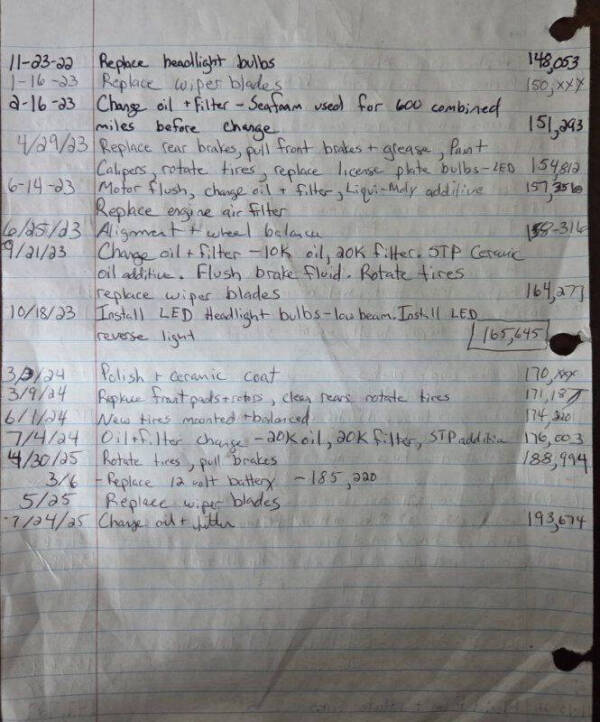 11-23-22 Replace headlight bulbs 148,053
1-16-23 Replace wiper blades 150,xxx
2-16-23 Change oil + Filter - Seafoam used for 600 combined
miles before change 151,293
4/29/23 Replace rear brakes, pull front brakes + grease, Paint
Calipers, rotate tires, replace license plate bulbs-LED 154,812
6-14-23 Motor flush, change oil + filter, Liqui-Moly additive 157,356
Replace engine air filter
6/25/23 Alignment + wheel balance 158-316
9/21/23 Change oil + filter - 10K oil, 20K filter. STP Ceramic
oil additive. Flush brake fluid. Rotate tires
replace wiper blades 164,273
10/18/23 Install LED Headlight bulbs - low beam. Install LED
reverse light 165,645
Polish + ceramic coat 170,xxx
3/9/24 Replace front pads + rotors, clean rears rotate tires
6/1/24 New tires mounted + balanced 174,320
7/4/24 Oil + filter change - 20K oil, 20K filter, STP additive 176,003
4/30/25 Rotate tires, pull brakes 188,994
3/6 - Replace 12 volt battery - 185,220
5/25 Replace wiper blades
7/24/25 Change oil + filter 193,674